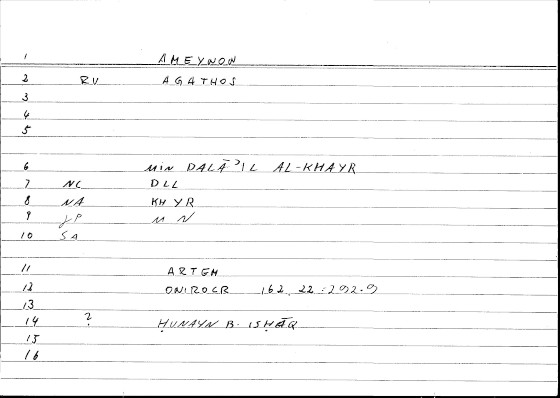 1 AMEYNON
2 RV AGATHOS
3
4
5
6 MIN DALĀʾIL AL-KHAYR
7 NC DLL
8 NA KHYR
9 JP MN
10 SA
11 ARTEM
12 ONIROCR 162.22:292.9
13
14 ? ḤUNAYN B. ISḤĀQ
15
16